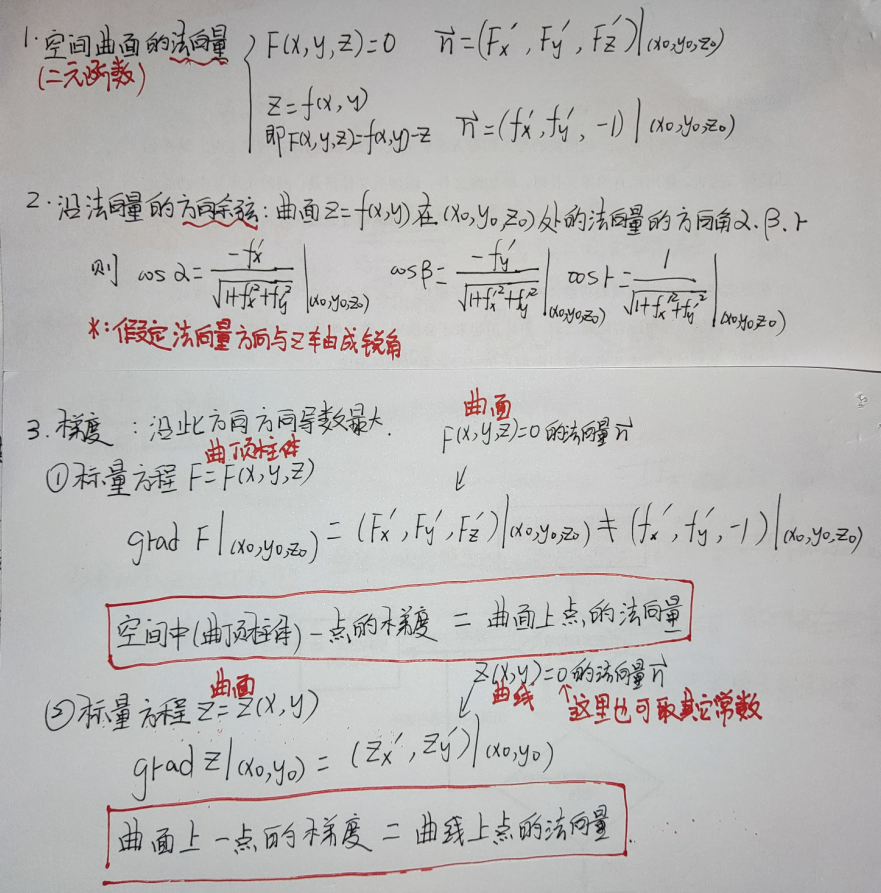 1. 空间曲面的法向量 { F(x,y,z)=0 n⃗=(Fx′, Fy′, Fz′)|(x₀,y₀,z₀)
(二元函数)
z=f(x,y)
即F(x,y,z)=f(x,y)-z n⃗=(fx′, fy′, -1)|(x₀,y₀,z₀)
2. 沿法向量的方向余弦: 曲面z=f(x,y)在(x₀,y₀,z₀)处的法向量的方向角α、β、γ
则 cosα=-fx′/√(1+fx′²+fy′²)|(x₀,y₀,z₀) cosβ=-fy′/√(1+fx′²+fy′²)|(x₀,y₀,z₀) cosγ=1/√(1+fx′²+fy′²)|(x₀,y₀,z₀)
*: 假定法向量方向与z轴成锐角
3. 梯度 : 沿此方向方向导数最大.
曲面
F(x,y,z)=0的法向量n⃗
曲顶柱体
①标量方程 F=F(x,y,z)
↙
grad F|(x₀,y₀,z₀) = (Fx′, Fy′, Fz′)|(x₀,y₀,z₀) ≠ (fx′, fy′, -1)|(x₀,y₀,z₀)
空间中(曲顶柱体)一点的梯度 = 曲面上点的法向量
z(x,y)=0的法向量n⃗
曲面
曲线 ↑这里也可取其它常数
②标量方程 z=z(x,y)
↙
grad z|(x₀,y₀) = (zx′, zy′)|(x₀,y₀)
曲面上一点的梯度 = 曲线上点的法向量.